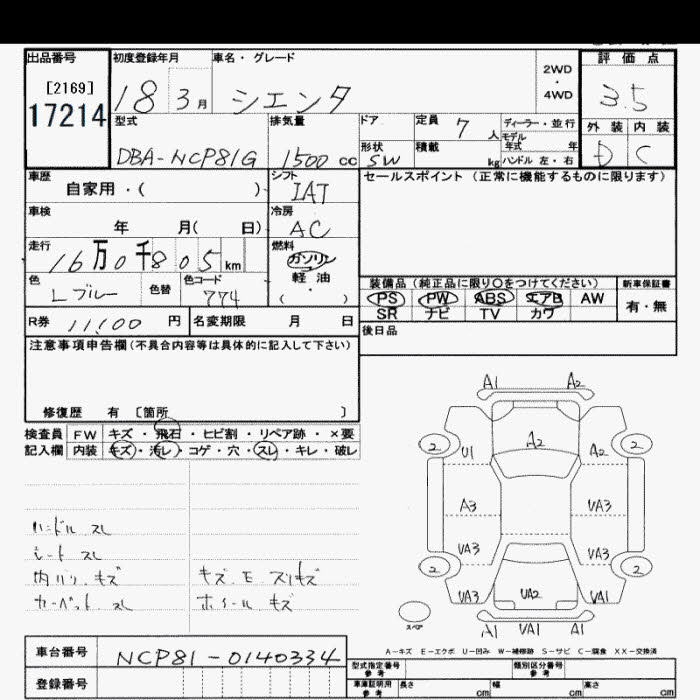 出品番号 初度登録年月 車名・グレード 2WD・4WD 評価点
[2169]
17214 18 3月 シエンタ 3.5
型式 排気量 ドア 定員 7人 ディーラー・並行 外装 内装
モデル年式 年
DBA-NCP81G 1500 cc 形状 SW 積載 kg ハンドル 左・右 D C
車歴 シフト セールスポイント (正常に機能するものに限ります)
自家用・( ) IAT
車検 冷房
年 月( 日) AC
走行 燃料
16万0千805km ガソリン
色 色替 色コード 軽油
Lブルー 774 ( ・ )
装備品(純正品に限り○をつけてください) 新車保証書
PS PW ABS エアB AW 有・無
SR ナビ TV カワ
R券 11,100 円 名変期限 月 日
後日品
注意事項申告欄(不具合内容等は具体的に記入して下さい)
修復歴 有 〔箇所 〕
検査員 FW キズ・飛石・ヒビ割・リペア跡・×要
記入欄 内装 キズ・汚レ・コゲ・穴・スレ・キレ・破レ
ハンドル スレ
シート スレ
内ハリ キズ
カーペット スレ
キズ.E.スリキズ
ホイール キズ
A1 A2
2 U1 A2 A2 2
A3 VA3
VA3 VA3
2 VA3 UA2 VA1 2
スペア
A1 VA1 A1
A-キズ E-エクボ U-凹み W-補修跡 S-サビ C-腐食 XX-交換済
車台番号 NCP81-0140334
型式指定番号 参考 類別区分番号 参考
登録番号
車庫証明用 参考 長さ cm 幅 cm 高さ cm